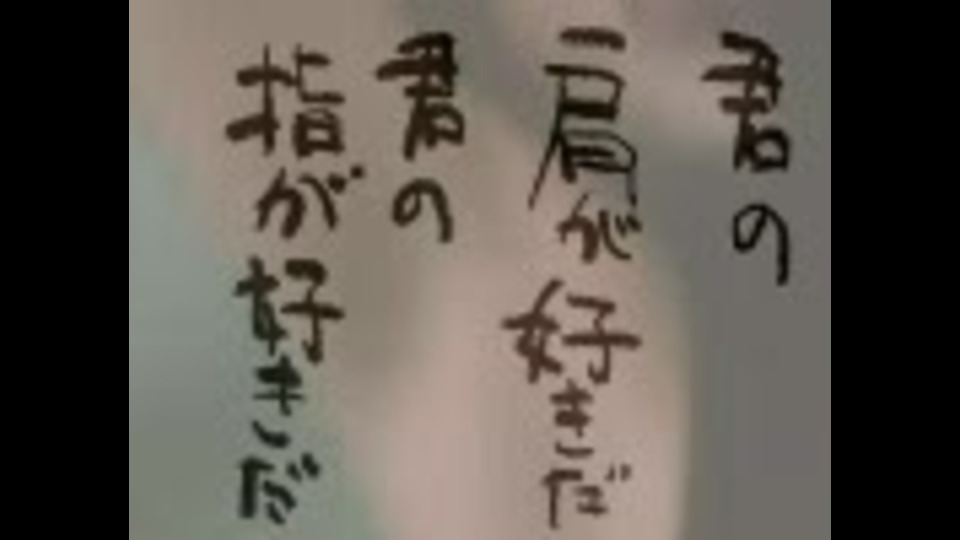 君の
肩が好きだ
君の
指が好きだ